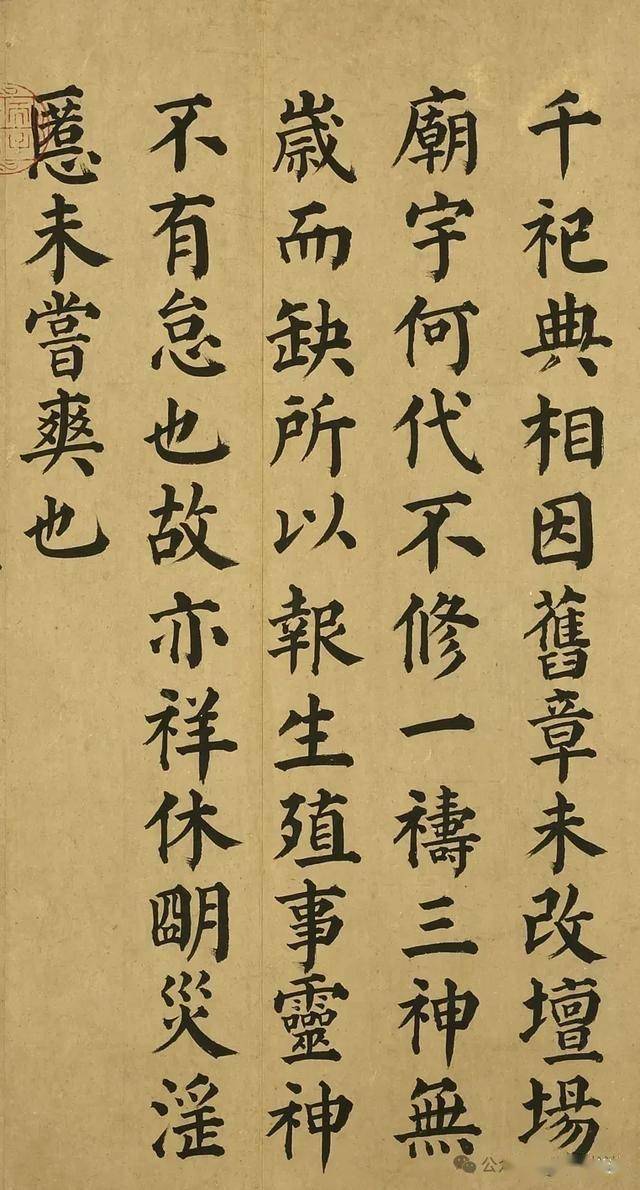 千祀典相因舊章未改壇場
廟宇何代不修一禱三神無
歲而缺所以報生殖事靈神
不有怠也故亦祥休明災淫
慝未嘗爽也
公众